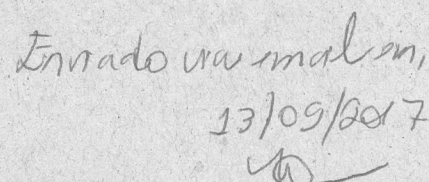 Enviado via email em,
13/09/2017